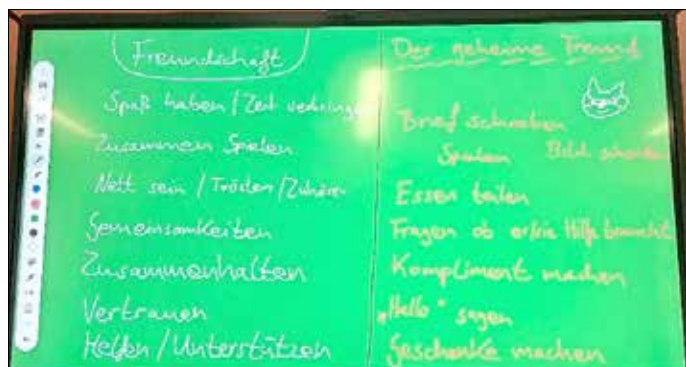 Freundschaft
Spaß haben / Zeit verbringen
Zusammen Spielen
Nett sein / Trösten / Zuhören
Gemeinsamkeiten
Zusammenhalten
Vertrauen
Helfen / Unterstützen
Der geheime Freund
Brief schreiben
Spielen Bild
Essen teilen
Fragen ob er/sie Hilfe braucht
Kompliment machen
„Hello" sagen
Geschenke machen